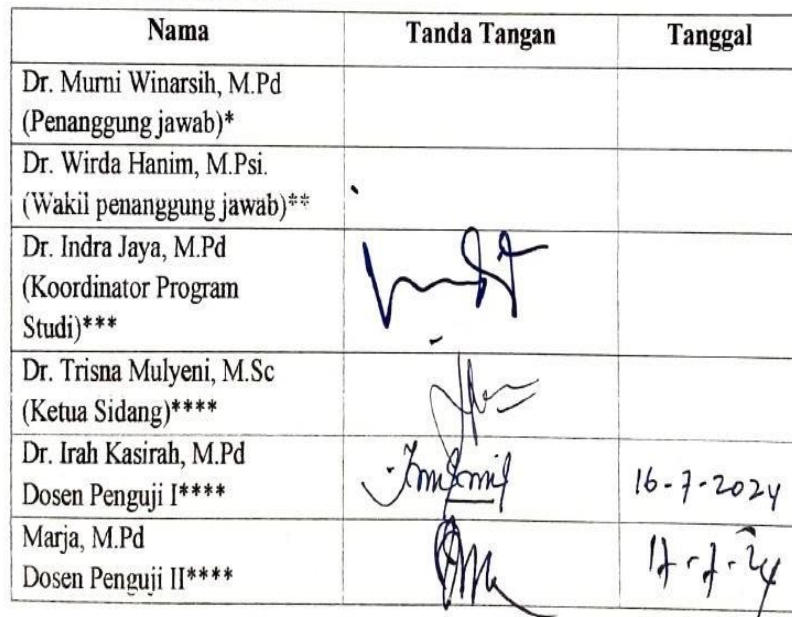 Nama Tanda Tangan Tanggal
Dr. Murni Winarsih, M.Pd
(Penanggung jawab)*
Dr. Wirda Hanim, M.Psi.
(Wakil penanggung jawab)**
Dr. Indra Jaya, M.Pd
(Koordinator Program
Studi)***
Dr. Trisna Mulyeni, M.Sc
(Ketua Sidang)****
Dr. Irah Kasirah, M.Pd
Dosen Penguji I**** 16-7-2024
Marja, M.Pd
Dosen Penguji II**** 17-7-24